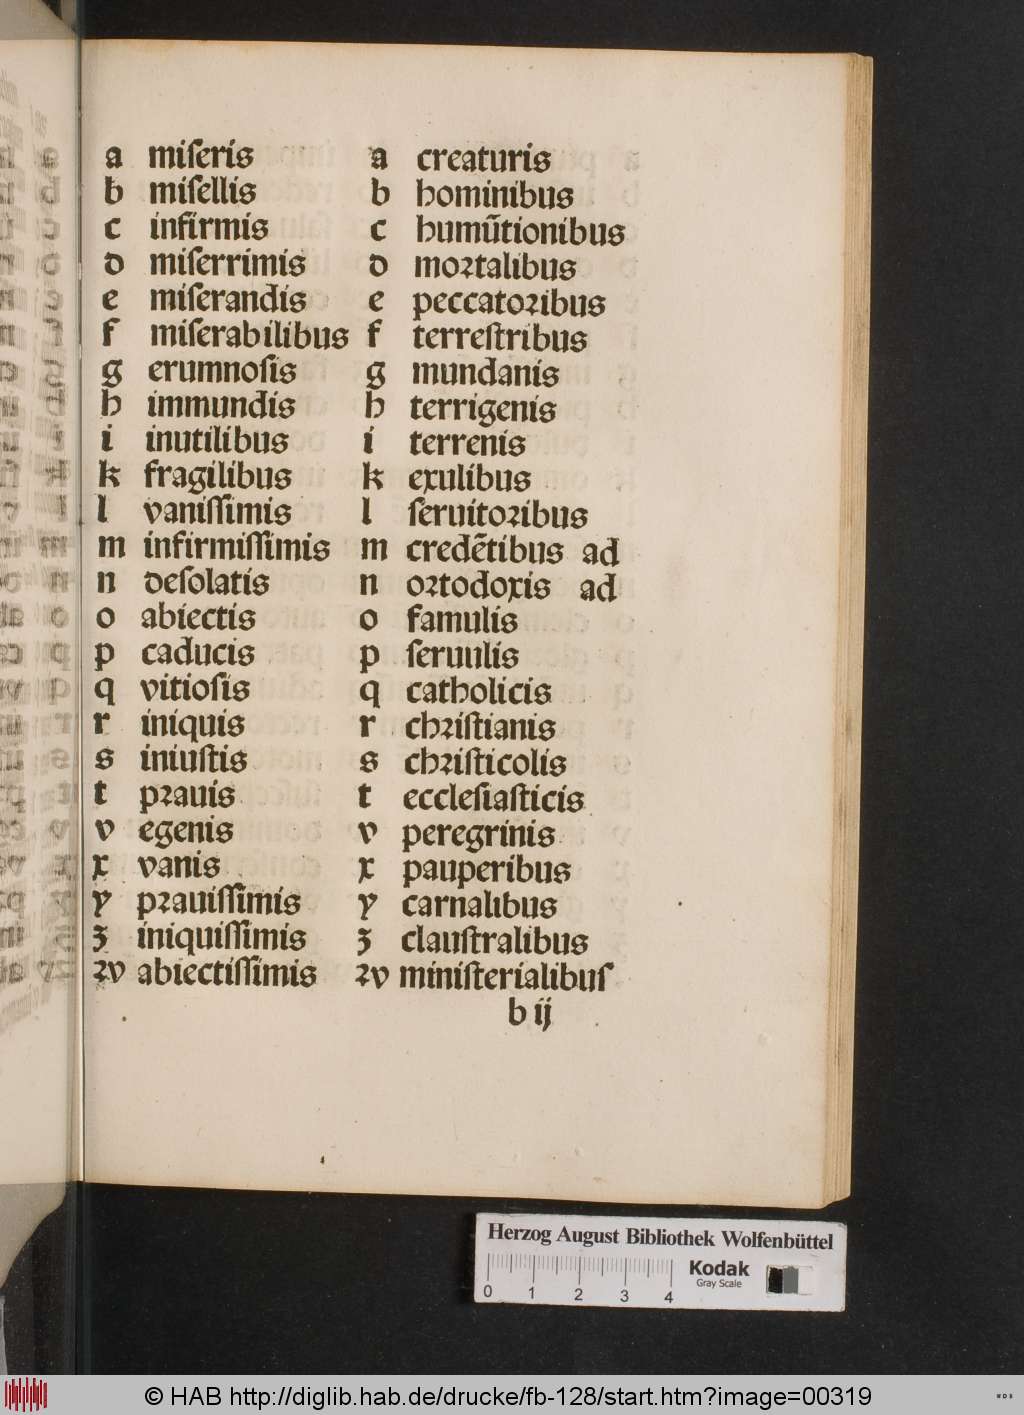 a miseris a creaturis
b misellis b hominibus
c infirmis c humũtionibus
d miserrimis d mortalibus
e miserandis e peccatoribus
f miserabilibus f terrestribus
g erumnosis g mundanis
h immundis h terrigenis
i inutilibus i terrenis
k fragilibus k exulibus
l vanissimis l seruitoribus
m infirmissimis m credẽtibus ad
n desolatis n ortodoxis ad
o abiectis o famulis
p caducis p seruulis
q vitiosis q catholicis
r iniquis r christianis
s iniustis s christicolis
t prauis t ecclesiasticis
v egenis v peregrinis
x vanis x pauperibus
y prauissimis y carnalibus
ʒ iniquissimis ʒ claustralibus
ꝛv abiectissimis ꝛv ministerialibus
b ij
Herzog August Bibliothek Wolfenbüttel
Kodak
Gray Scale
0 1 2 3 4
© HAB http://diglib.hab.de/drucke/fb-128/start.htm?image=00319